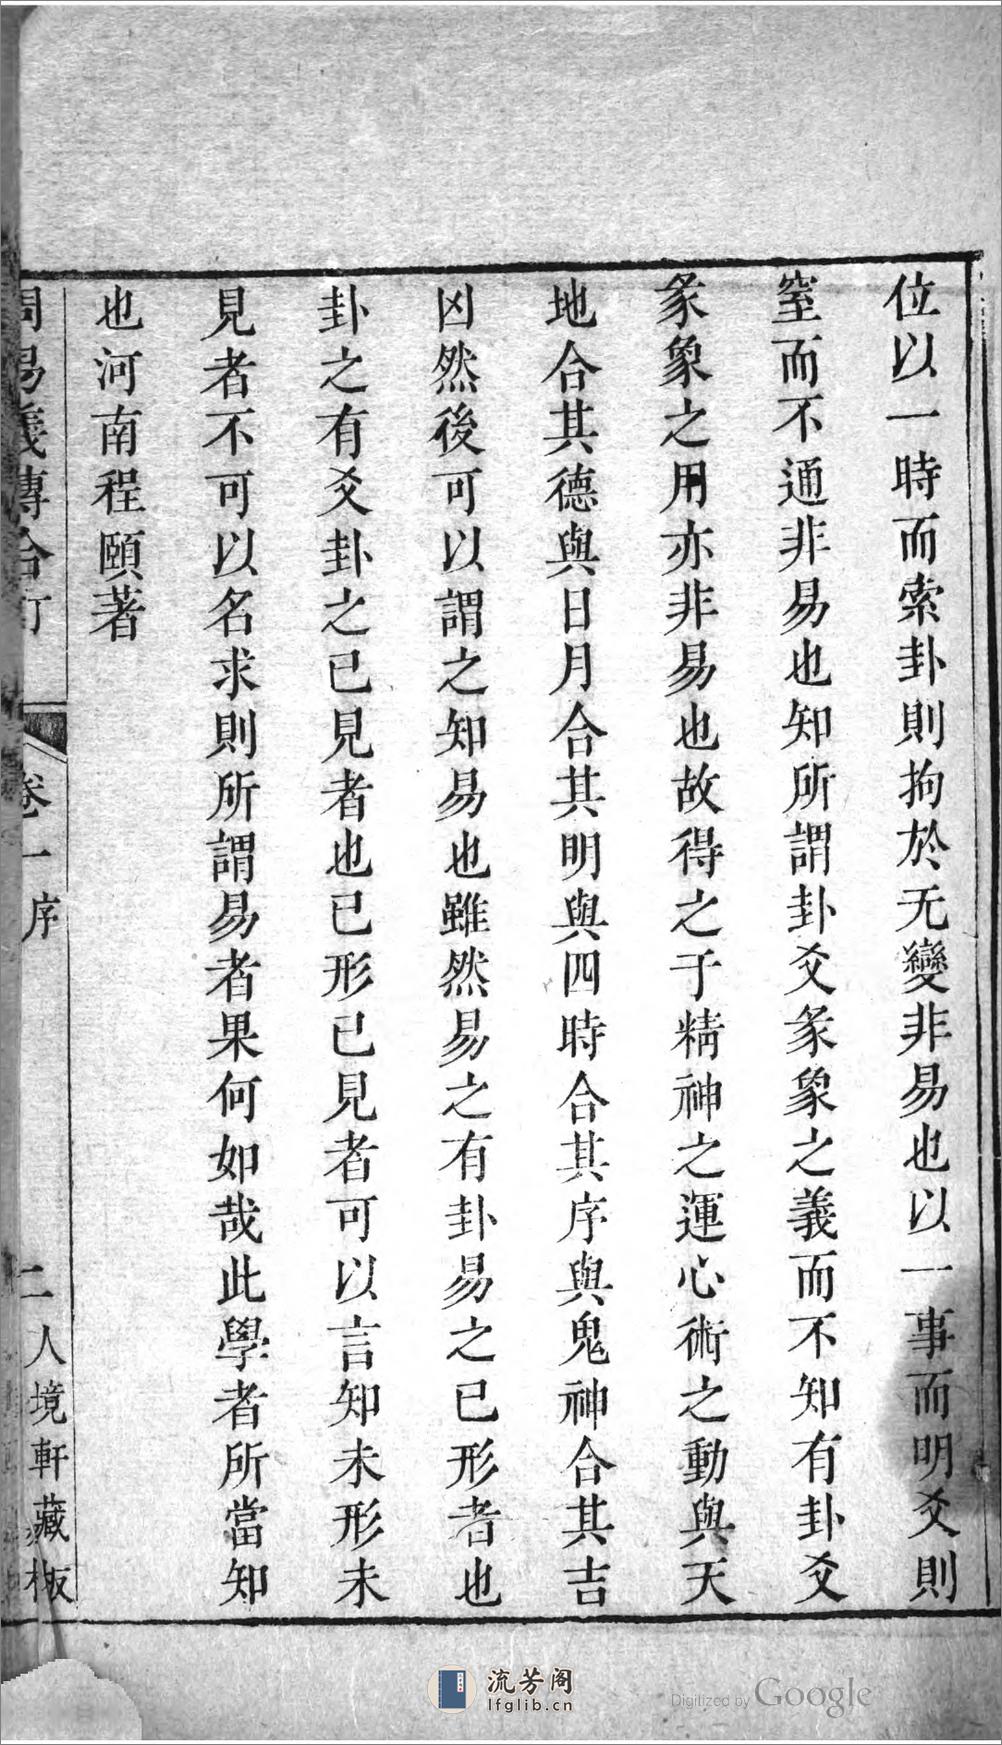 位以一時而索卦則拘於无變非易也以一事而明爻則
窒而不通非易也知所謂卦爻彖象之義而不知有卦爻
彖象之用亦非易也故得之于精神之運心術之動與天
地合其德與日月合其明與四時合其序與鬼神合其吉
凶然後可以謂之知易也雖然易之有卦易之已形者也
卦之有爻卦之已見者也已形已見者可以言知未形未
見者不可以名求則所謂易者果何如哉此學者所當知
也河南程頤著
周易義傳合訂 卷一序 二 人境軒藏板
流芳阁
lfglib.cn
Digitized by Google